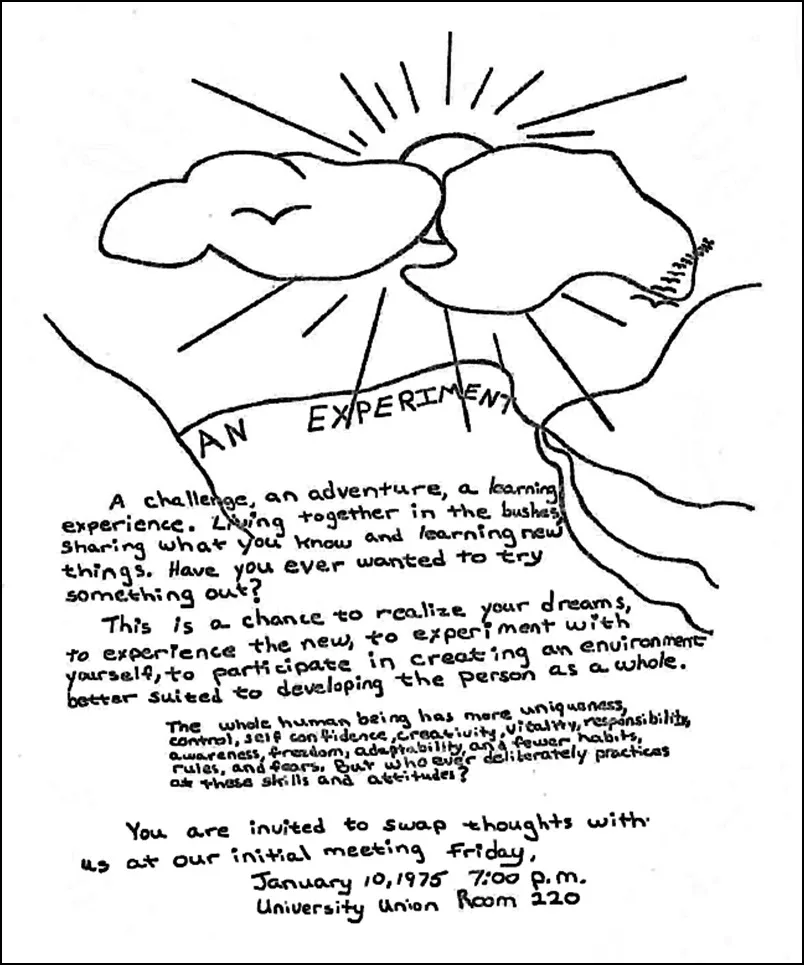 AN EXPERIMENT
A challenge, an adventure, a learning
experience. Living together in the bushes,
sharing what you know and learning new
things. Have you ever wanted to try
something out?
This is a chance to realize your dreams,
to experience the new, to experiment with
yourself, to participate in creating an environment
better suited to developing the person as a whole.
The whole human being has more uniqueness,
control, self confidence, creativity, vitality, responsibility,
awareness, freedom, adaptability, and fewer habits,
rules, and fears. But who ever deliberately practices
at these skills and attitudes?
You are invited to swap thoughts with
us at our initial meeting Friday,
January 10, 1975 7:00 p.m.
University Union Room 220